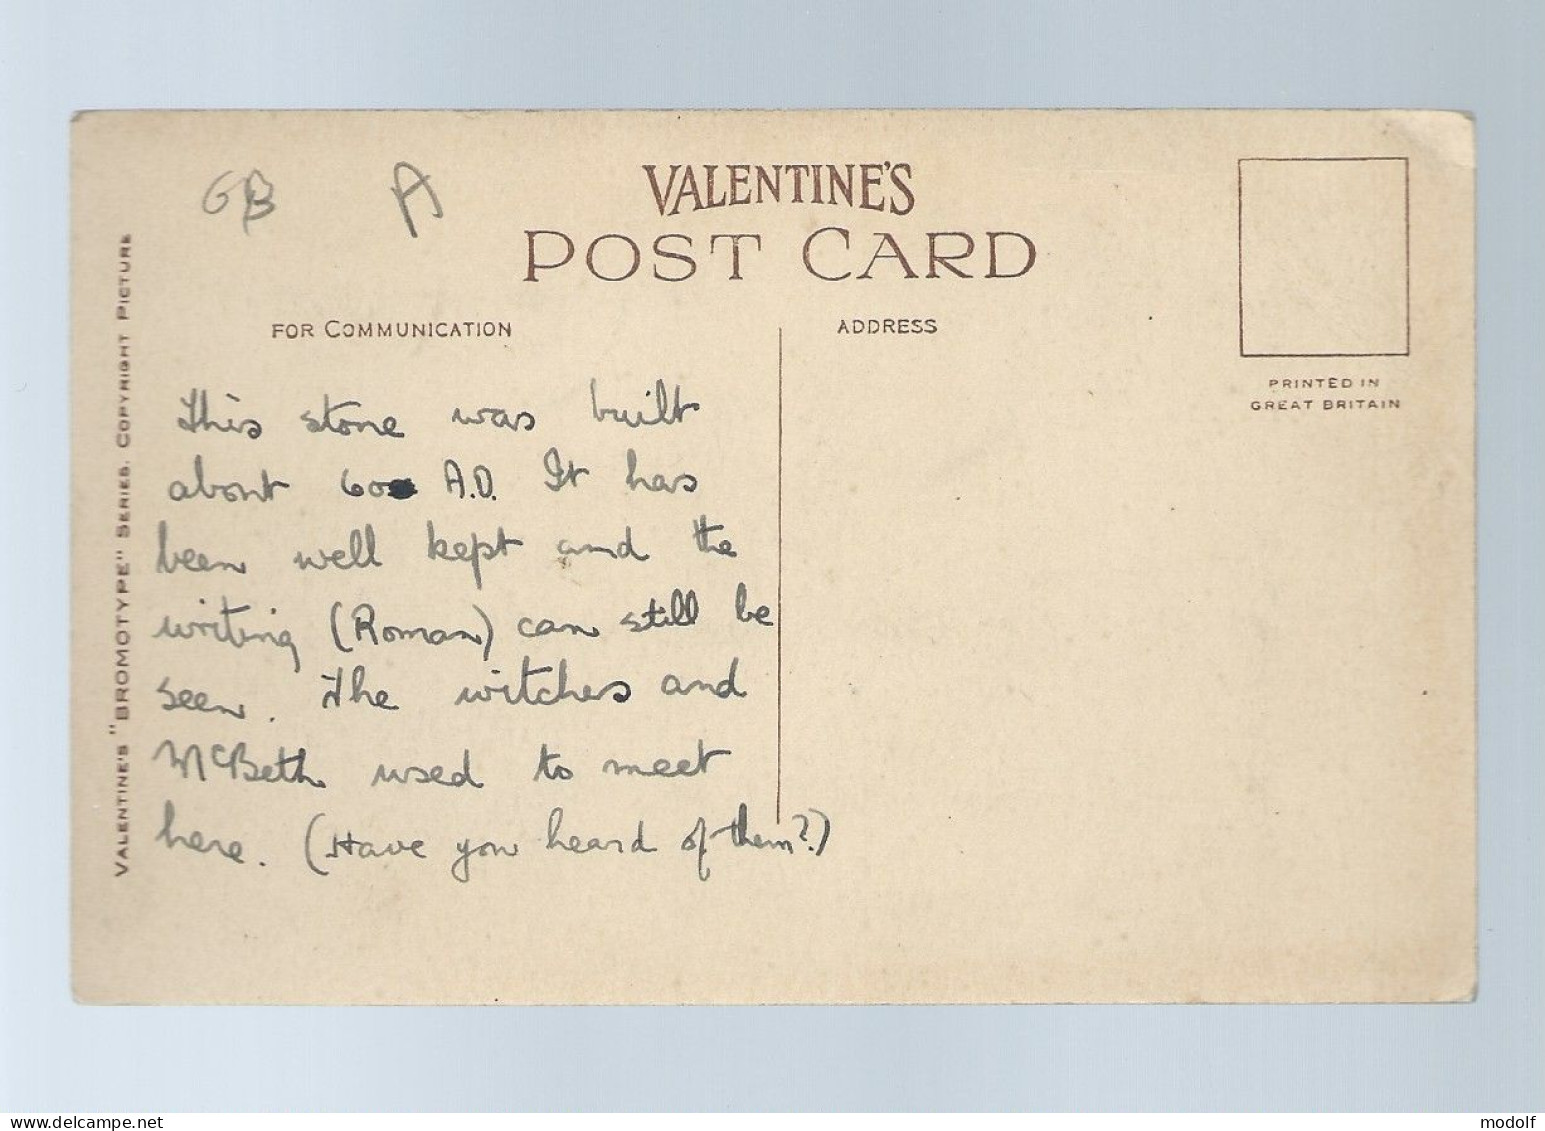 GB A
VALENTINE'S
POST CARD
FOR COMMUNICATION
ADDRESS
PRINTED IN
GREAT BRITAIN
VALENTINE'S "BROMOTYPE" SERIES. COPYRIGHT PICTURE
This stone was built
about 600 A.D. It has
been well kept and the
writing (Roman) can still be
seen. The witches and
McBeth used to meet
here. (Have you heard of them?)
modolf